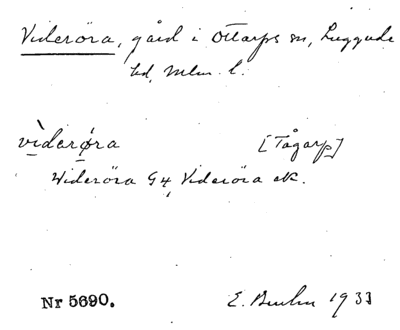 Videröra, gård i Ottarps sn, Luggude
hd, Mlm. l.
vìderǿra [Tågarp]
Wideröra G4, Videröra ek.
Nr 5690. E. 1933